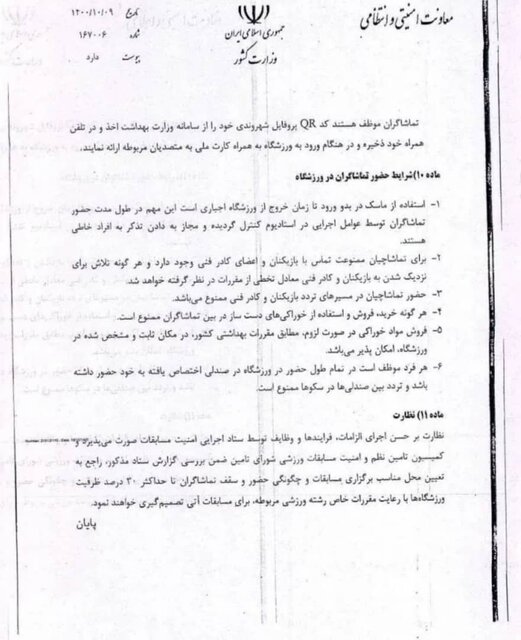 معاونت امنیتی و انتظامی
جمهوری اسلامی ایران
وزارت کشور
تاریخ ۱۴۰۰/۱۰/۰۹
شماره ۱۶۷۰۰۶
پیوست دارد
تماشاگران موظف هستند کد QR پروفایل شهروندی خود را از سامانه وزارت بهداشت اخذ و در تلفن
همراه خود ذخیره و در هنگام ورود به ورزشگاه به همراه کارت ملی به متصدیان مربوطه ارائه نمایند.
ماده ۱۰) شرایط حضور تماشاگران در ورزشگاه
۱- استفاده از ماسک در بدو ورود تا زمان خروج از ورزشگاه اجباری است این مهم در طول مدت حضور
تماشاگران توسط عوامل اجرایی در استادیوم کنترل گردیده و مجاز به دادن تذکر به افراد خاطی
هستند.
۲- برای تماشاچیان ممنوعت تماس با بازیکنان و اعضای کادر فنی وجود دارد و هر گونه تلاش برای
نزدیک شدن به بازیکنان و کادر فنی معادل تخطی از مقررات در نظر گرفته خواهد شد.
۳- حضور تماشاچیان در مسیرهای تردد بازیکنان و کادر فنی ممنوع می‌باشد.
۴- هر گونه خرید، فروش و استفاده از خوراکی‌های دست ساز در بین تماشاگران ممنوع است.
۵- فروش مواد خوراکی در صورت لزوم، مطابق مقررات بهداشتی کشور، در مکان ثابت و مشخص شده در
ورزشگاه، امکان پذیر می‌باشد.
۶- هر فرد موظف است در تمام طول حضور در ورزشگاه در صندلی اختصاص یافته به خود حضور داشته
باشد و تردد بین صندلی‌ها در سکوها ممنوع است.
ماده ۱۱) نظارت
نظارت بر حسن اجرای الزامات، فرایندها و وظایف توسط ستاد اجرایی امنیت مسابقات صورت می‌پذیرد و
کمیسیون تامین نظم و امنیت مسابقات ورزشی شورای تامین ضمن بررسی گزارش ستاد مذکور، راجع به
تعیین محل مناسب برگزاری مسابقات و چگونگی حضور و سقف تماشاگران تا حداکثر ۳۰ درصد ظرفیت
ورزشگاه‌ها با رعایت مقررات خاص رشته ورزشی مربوطه، برای مسابقات آتی تصمیم‌گیری خواهند نمود.
پایان